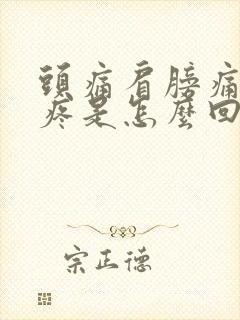 頭痛肩膀痛
疼是怎麼回
宗正德